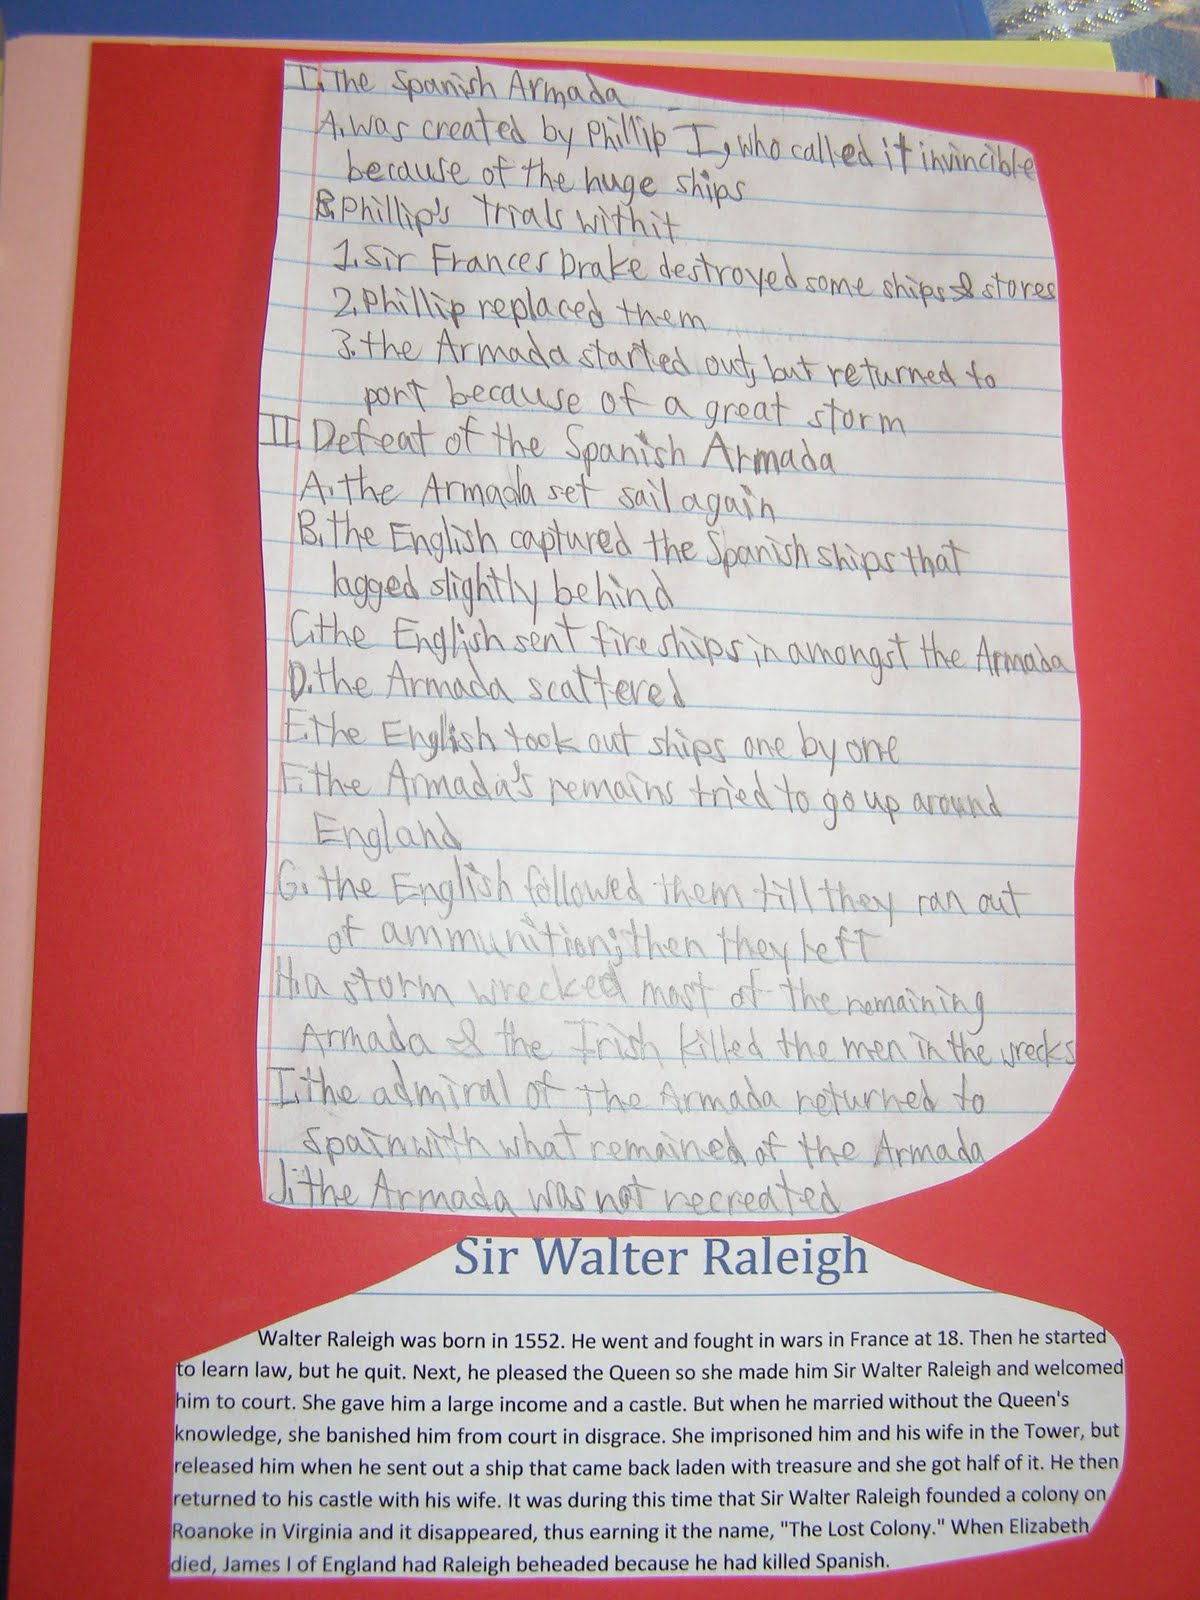 I. The Spanish Armada
A. was created by Phillip I, who called it invincible
because of the huge ships
B. Phillip's trials with it
1. Sir Frances Drake destroyed some ships & stores
2. Phillip replaced them
3. the Armada started out, but returned to
port because of a great storm
II. Defeat of the Spanish Armada
A. the Armada set sail again
B. the English captured the Spanish ships that
lagged slightly behind
C. the English sent fire ships in amongst the Armada
D. the Armada scattered
E. the English took out ships one by one
F. the Armada's remains tried to go up around
England
G. the English followed them till they ran out
of ammunition; then they left
H. a storm wrecked most of the remaining
Armada & the Irish killed the men in the wrecks
I. the admiral of the Armada returned to
Spain with what remained of the Armada
J. the Armada was not recreated
Sir Walter Raleigh
Walter Raleigh was born in 1552. He went and fought in wars in France at 18. Then he started
to learn law, but he quit. Next, he pleased the Queen so she made him Sir Walter Raleigh and welcomed
him to court. She gave him a large income and a castle. But when he married without the Queen's
knowledge, she banished him from court in disgrace. She imprisoned him and his wife in the Tower, but
released him when he sent out a ship that came back laden with treasure and she got half of it. He then
returned to his castle with his wife. It was during this time that Sir Walter Raleigh founded a colony on
Roanoke in Virginia and it disappeared, thus earning it the name, "The Lost Colony." When Elizabeth
died, James I of England had Raleigh beheaded because he had killed Spanish.